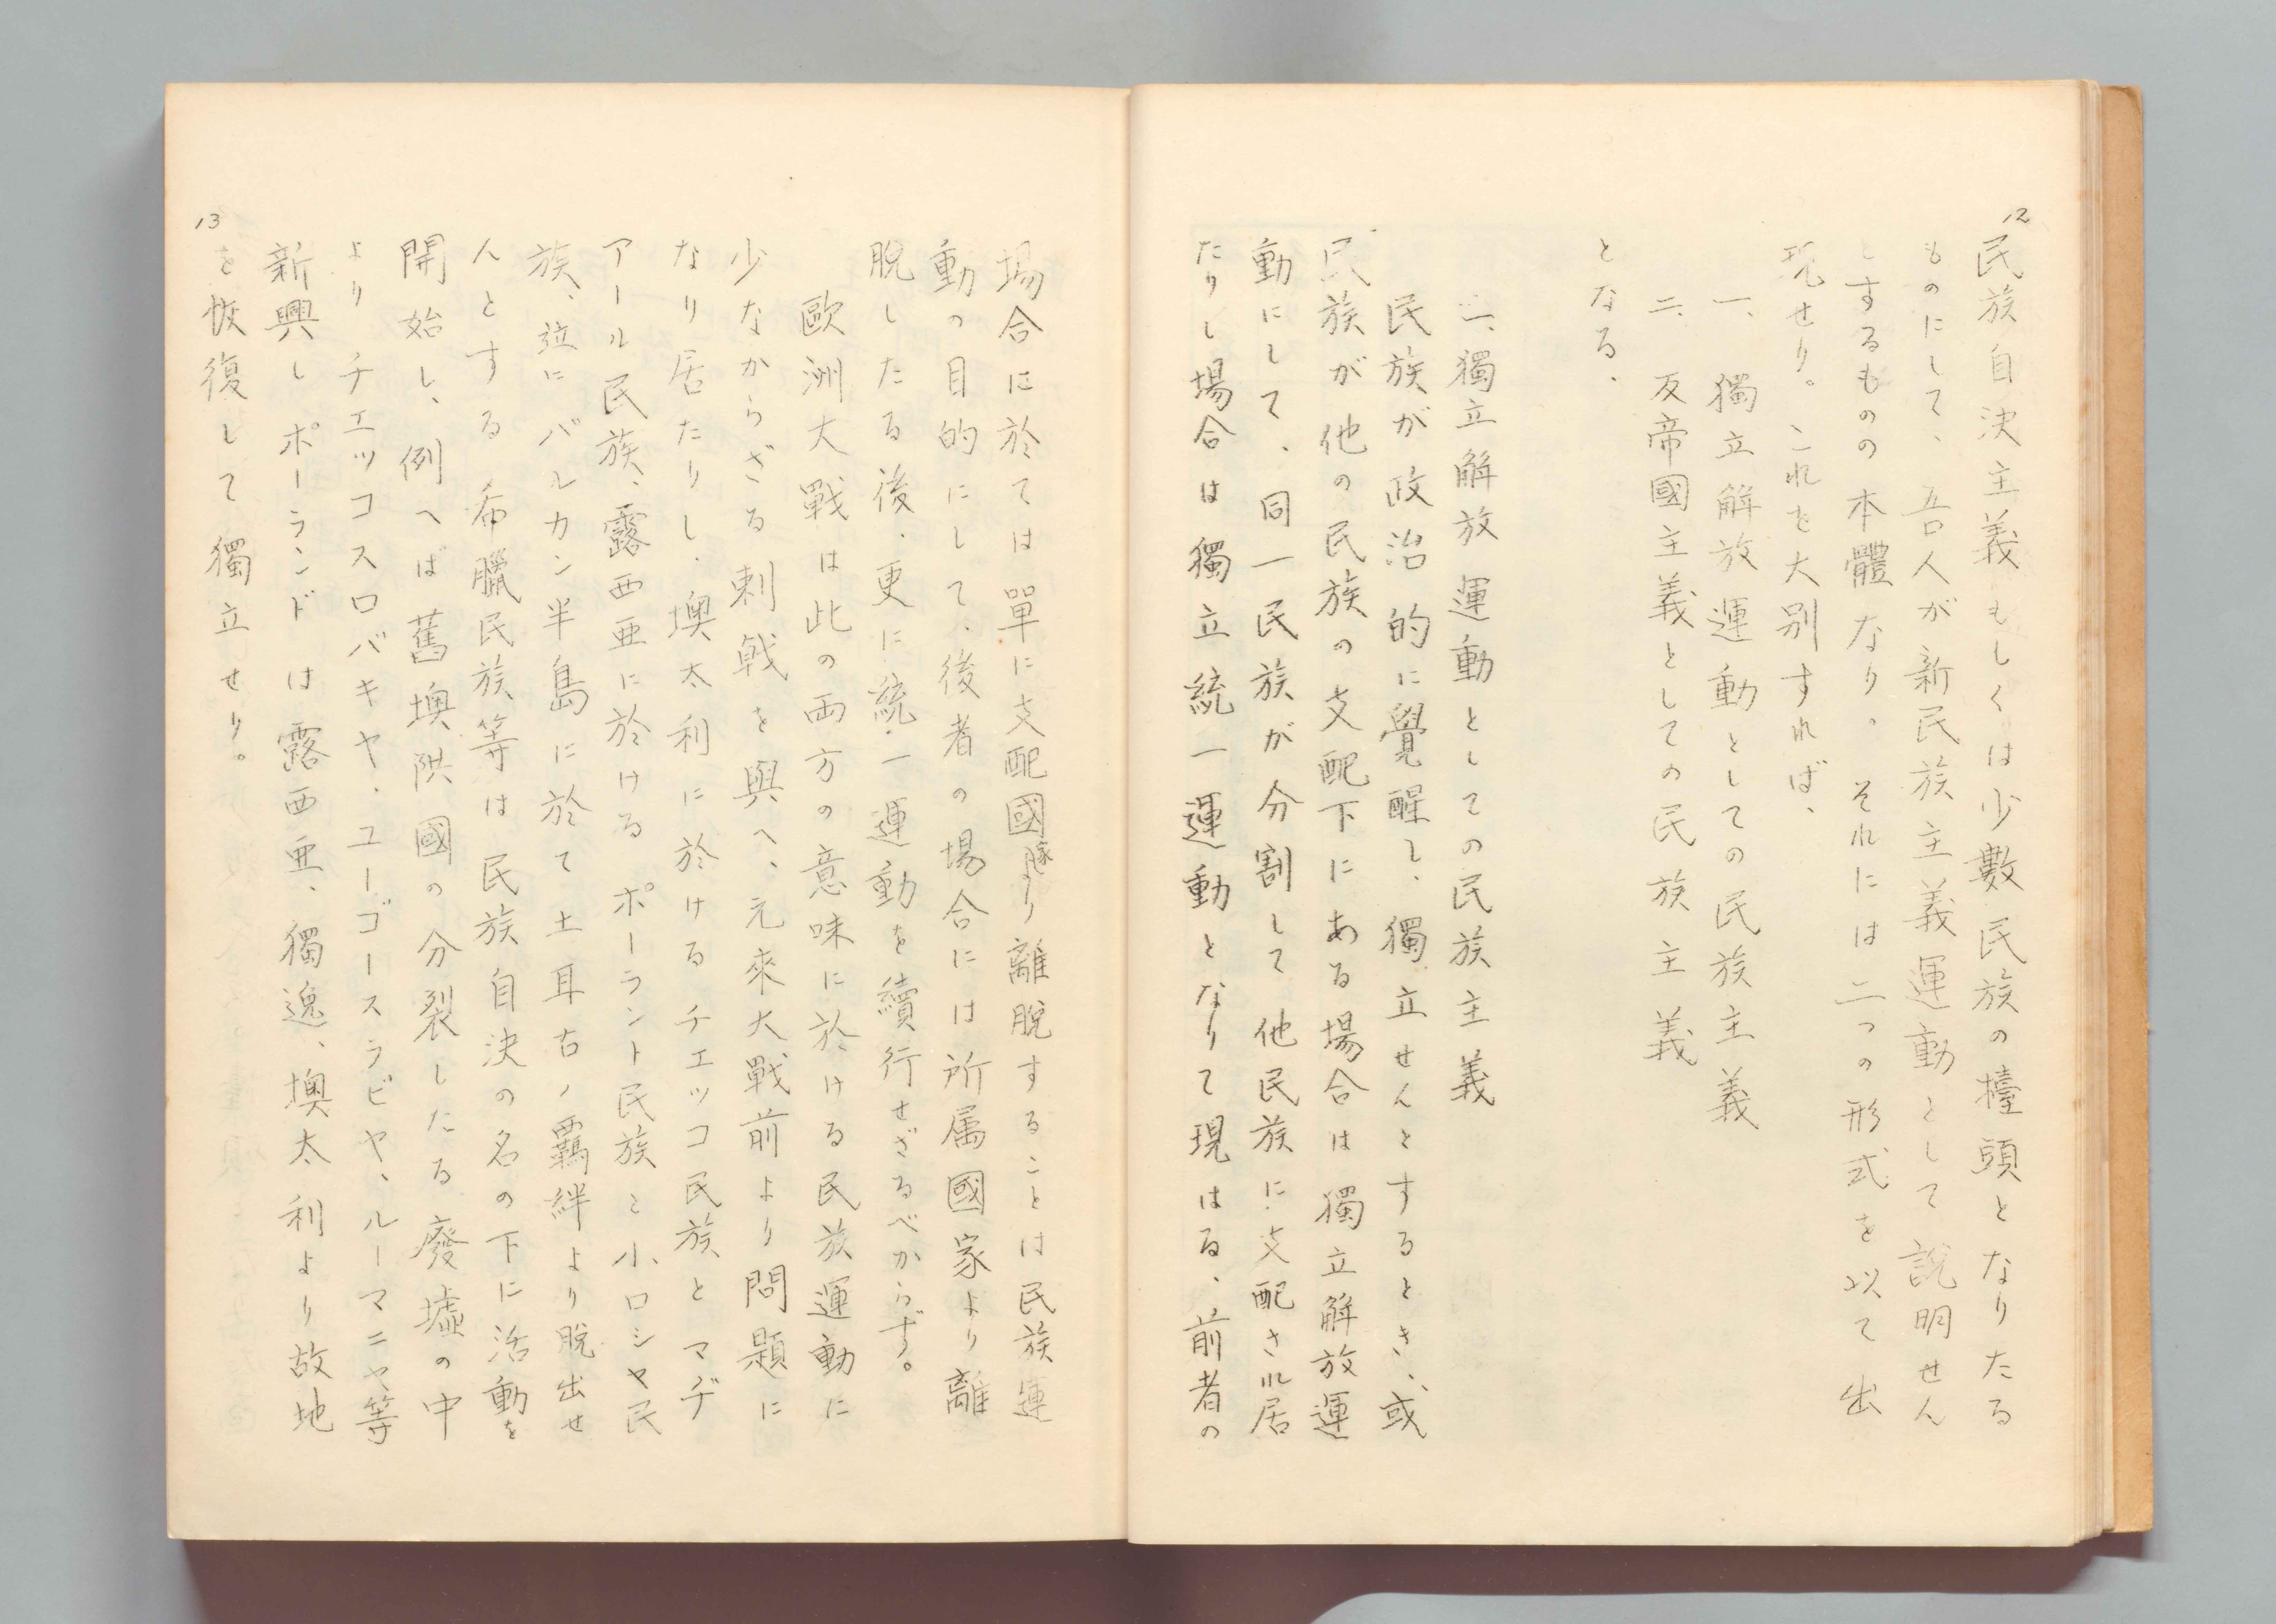 12
民族自決主義もしくは少數民族の擡頭となりたる
ものにして、吾人が新民族主義運動として說明せん
とするものの本體なり。それには二つの形式を以て出
現せり。これを大別すれば、
一、獨立解放運動としての民族主義
二、反帝國主義としての民族主義
となる、
一、獨立解放運動としての民族主義
民族が政治的に覺醒し、獨立せんとするとき、或
民族が他の民族の支配下にある場合は獨立解放運
動にして、同一民族が分割して他民族に支配され居
たりし場合は獨立統一運動となりて現はる、前者の
13
場合に於ては單に支配國家より離脫することは民族運
動の目的にして、後者の場合には所属國家より離
脫したる後、更に統一運動を續行せざるべからず。
歐洲大戰は此の両方の意味に於ける民族運動に
少なからざる刺戟を與へ、元來大戰前より問題に
なり居たりし、墺太利に於けるチェッコ民族とマヂ
アール民族、露西亜に於けるポーラント民族と小ロシヤ民
族、竝にバルカン半島に於て土耳古ノ羈絆より脫出せ
んとする希臘民族等は民族自決の名の下に活動を
開始し、例へば舊墺洪國の分裂したる廢墟の中
より チェッコスロバキヤ、ユーゴースラビヤ、ルーマニヤ等
新興しポーランドは露西亜、獨逸、墺太利より故地
を恢復して獨立せり。